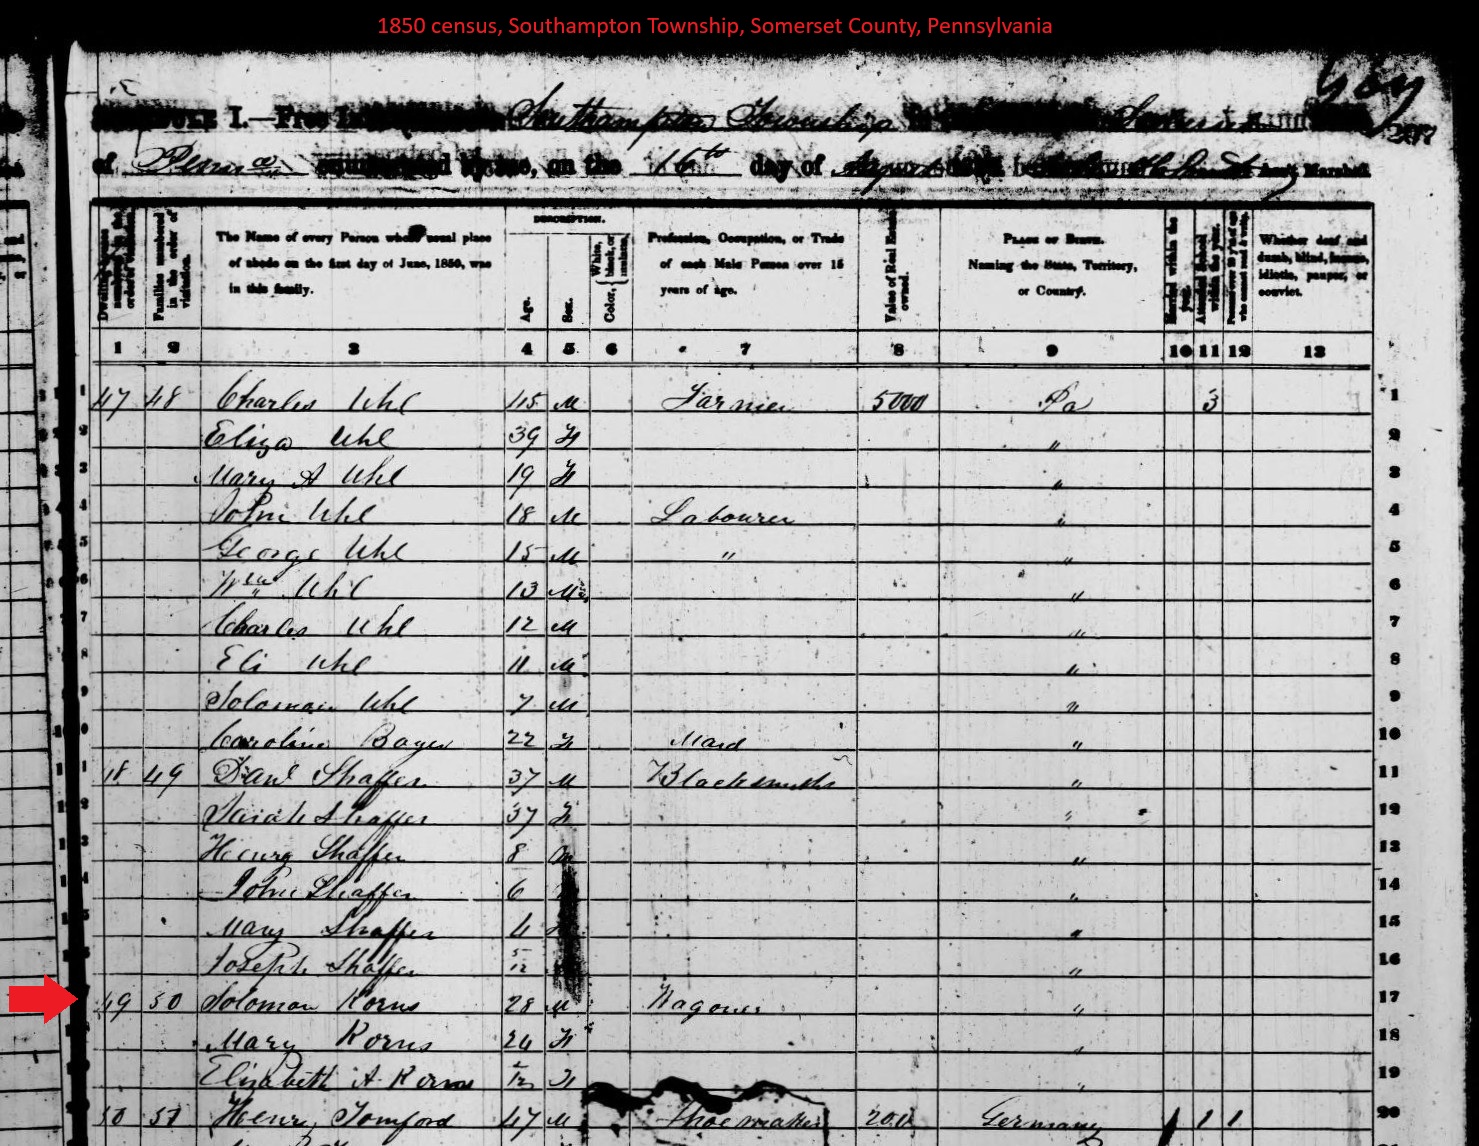 1850 census, Southampton Township, Somerset County, Pennsylvania
I.—Free Southampton Township
of Penna on the 16th day of Marshal.
DESCRIPTION.
Dwelling-houses numbered in the order of visitation. Families numbered in the order of visitation. The Name of every Person whose usual place of abode on the first day of June, 1850, was in this family. Age. Sex. Color, White, black, or mulatto. Profession, Occupation, or Trade of each Male Person over 15 years of age. Value of Real Estate owned. PLACE OF BIRTH. Naming the State, Territory, or Country. Married within the year. Attended School within the year. Whether deaf and dumb, blind, insane, idiotic, pauper, or convict.
1 2 3 4 5 6 7 8 9 10 11 12 13
1 47 48 Charles Uhl 45 M Farmer 5000 Pa 3 1
2 Eliza Uhl 39 F " 2
3 Mary A Uhl 19 F " 3
4 John Uhl 18 M Labourer " 4
5 George Uhl 15 M " " 5
6 Wm Uhl 13 M " 6
7 Charles Uhl 12 M " 7
8 Eli Uhl 11 M " 8
9 Soloman Uhl 7 M " 9
10 Caroline 22 F Maid " 10
11 48 49 Danl Shaffer 37 M Blacksmith " 11
12 Sarah Shaffer 37 F " 12
13 Henry Shaffer 8 M " 13
14 John Shaffer 6 " 14
15 Mary Shaffer 4 " 15
16 Joseph Shaffer 5/12 " 16
49 50 Soloman Korns 28 M Wagoner " 17
Mary Korns 24 F " 18
Elizabeth A Korns F " 19
50 51 Henry Tomford 47 M Shoemaker 200 Germany 1 1 1 20